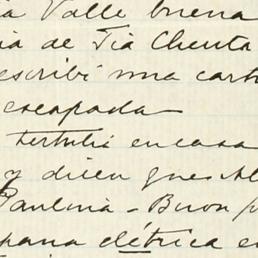 a Valle buena
ia de Tia Chenta
escribí una cart
escapada
tertulia en casa
y dicen que
Paulina - Buon
pana eléctrica e